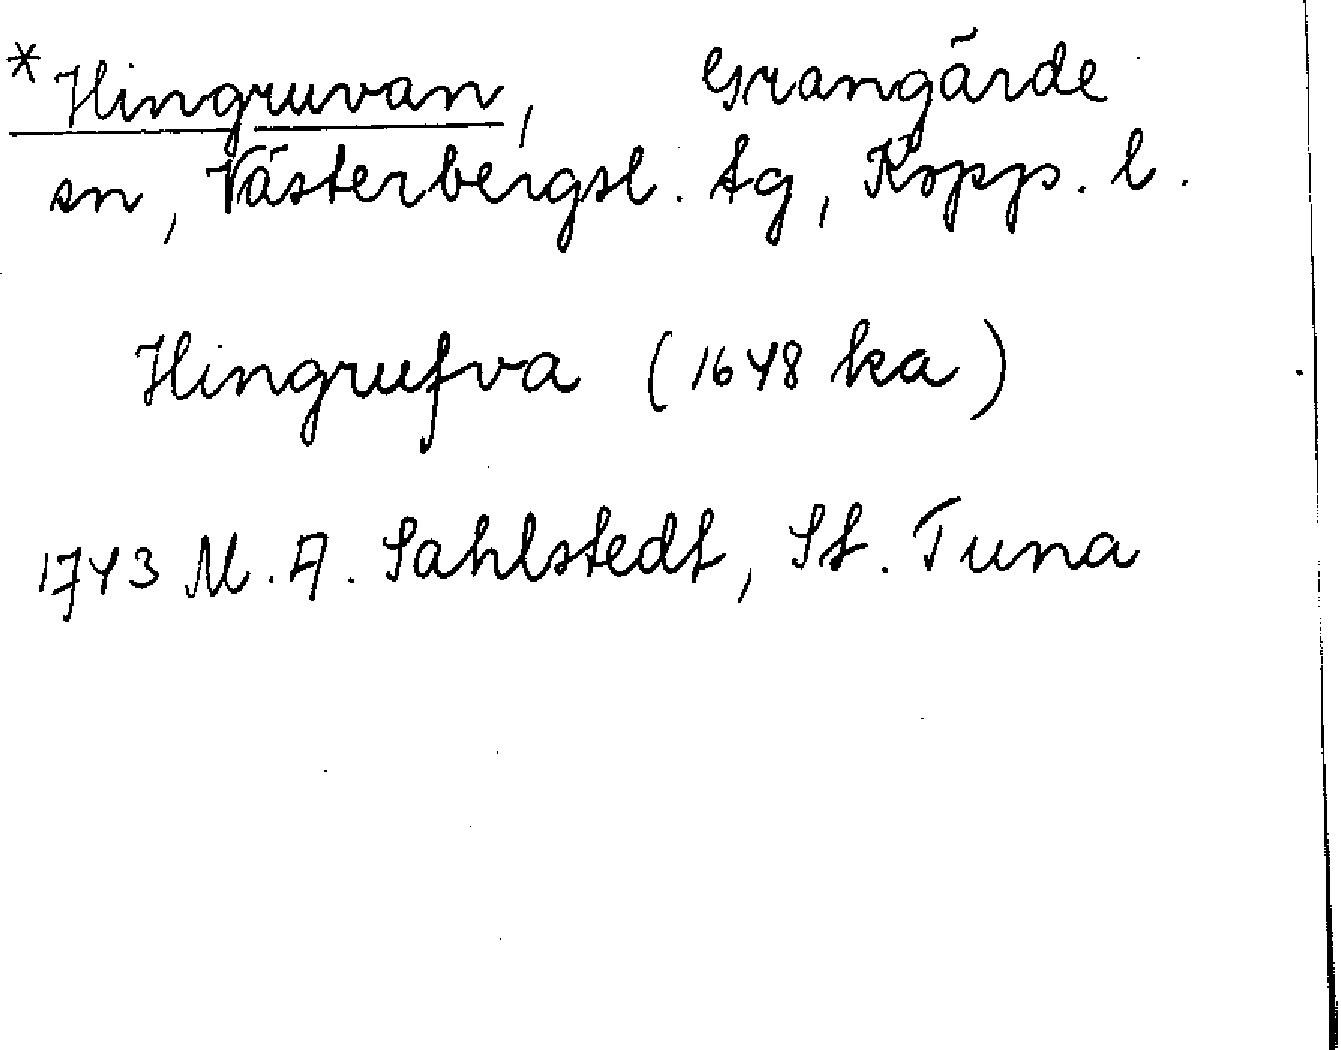 *Hingruvan, Grangärde
sn, Västerbergsl. tg, Kopp. l.
Hingrufva (1648 ka)
1743 M. A. Sahlstedt, St. Tuna